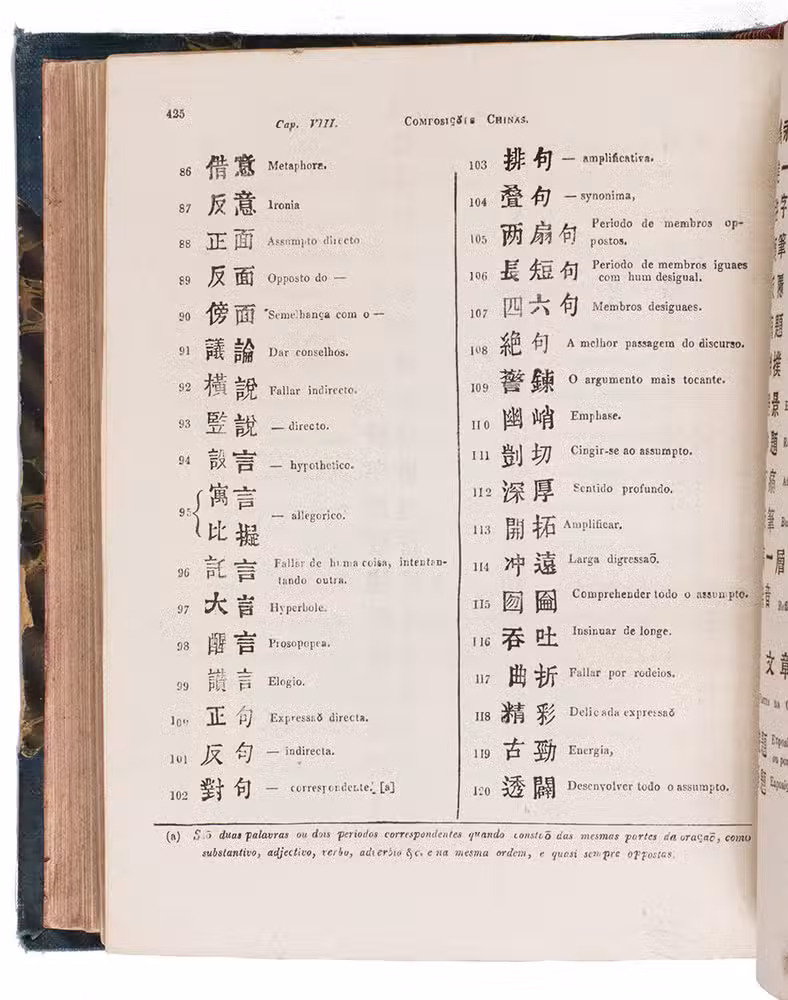 425
Cap. VIII. COMPOSIÇŎIS CHINAS.
86 借意 Metaphora.
87 反意 Ironia
88 正面 Assumpto directo
89 反面 Opposto do —
90 傍面 Semelhança com o —
91 議論 Dar conselhos.
92 橫說 Fallar indirecto.
93 竪說 — directo.
94 設言 — hypothetico.
95 { 寓言
比擬 — allegorico.
96 託言 Fallar de huma coisa, intentan-
tando outra.
97 大言 Hyperbole.
98 醒言 Prosopopea.
99 讃言 Elogio.
100 正句 Expressaŏ directa.
101 反句 — indirecta.
102 對句 — correspondente. [a]
103 排句 — amplificativa.
104 叠句 — synonima,
105 两扇句 Periodo de membros op-
postos.
106 長短句 Periodo de membros iguaes
com hum desigual.
107 四六句 Membros desiguaes.
108 絕句 A melhor passagem do discurso.
109 警鍊 O argumento mais tocante.
110 幽峭 Emphase.
111 剴切 Cingir-se ao assumpto.
112 深厚 Sentido profundo.
113 開拓 Amplificar.
114 冲遠 Larga digressaŏ.
115 Comprehender todo o assumpto.
116 吞吐 Insinuar de longe.
117 曲折 Fallar por rodeios.
118 精彩 Delicada expressaŏ
119 古勁 Energia,
120 透闢 Desenvolver todo o assumpto.
(a) Saŏ duas palavras ou dois periodos correspondentes quando constaŏ das mesmas partes da oraçaŏ, como
substantivo, adjectivo, verbo, adverbio &c. e na mesma ordem, e quasi sempre oppostas.
一
字
筆
題
景
題
筆
一層
音
文章